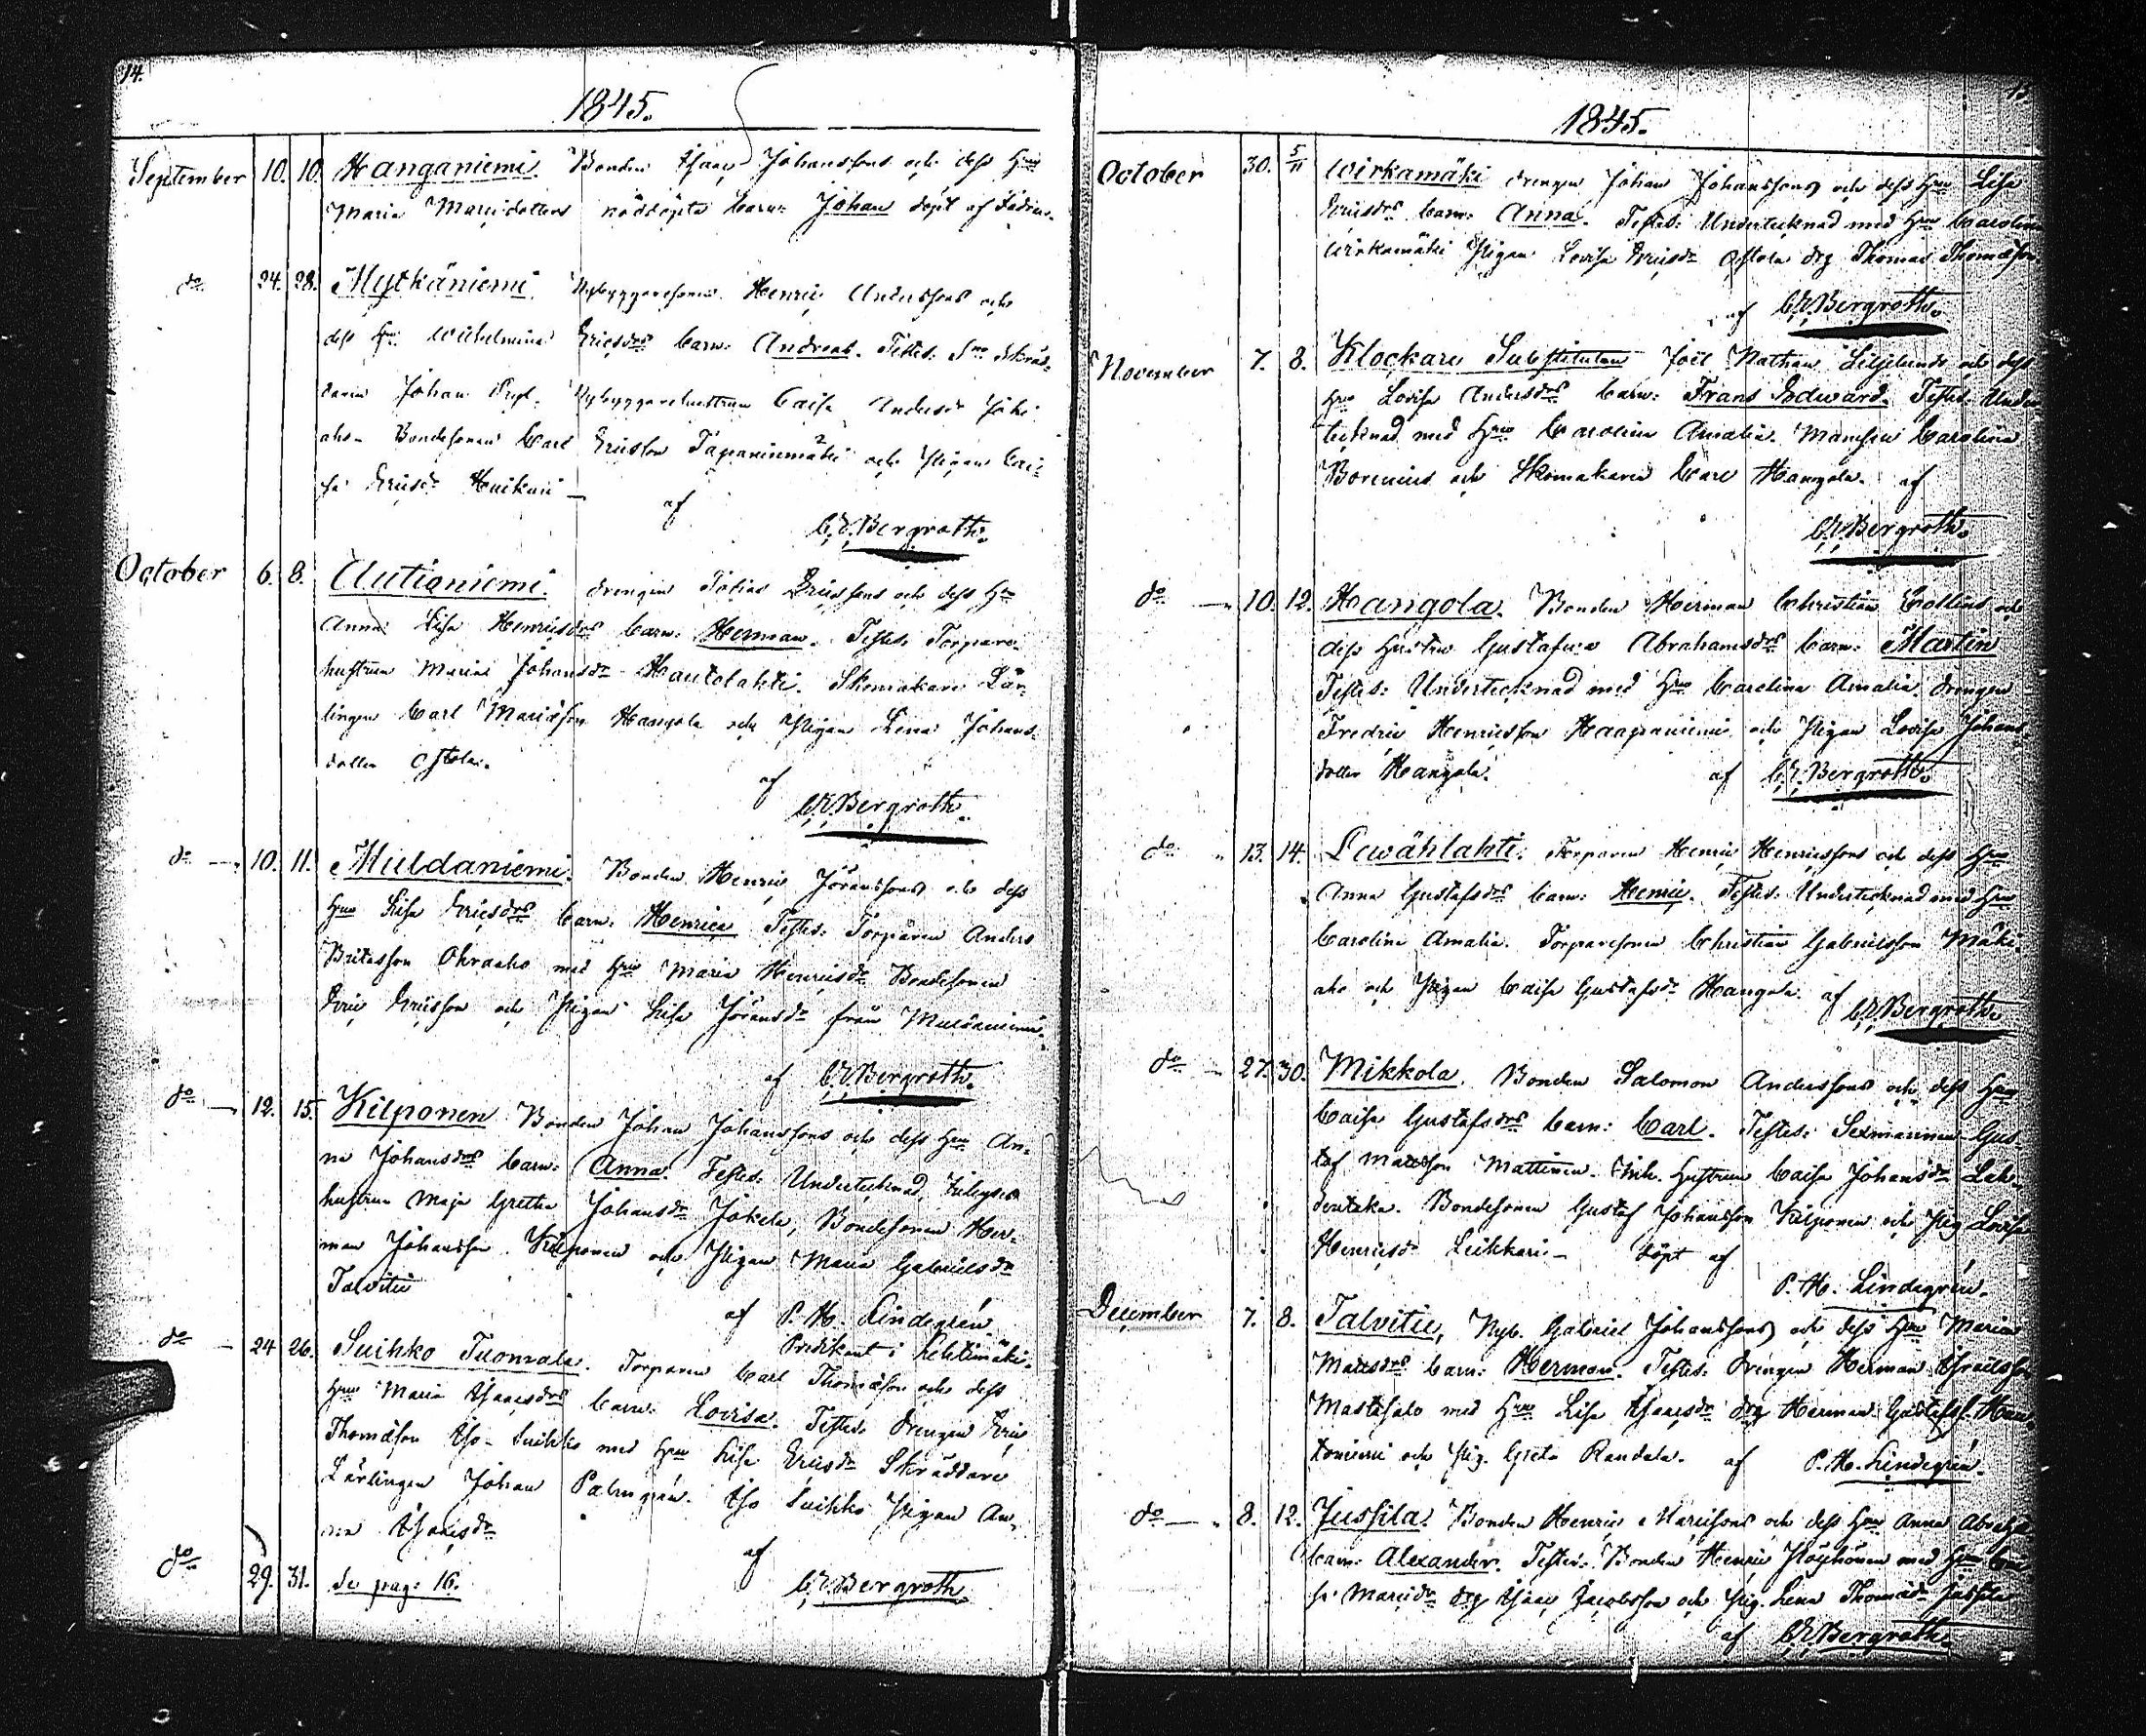 14.
1845.
September 10. 10. Hanganiemi. Bonden Isaac Johanssons och dess Hru
Maria Mariædotters nöddöpta barn: Johan döpt af
do 24. 28. Mytkäniemi Nybyggaresonen Henric Anderssons och
dess Hru Wilhelmina Ericsdrs barn: Andreas. Testes: Skräd-
daren Johan Nybyggarehustrun Caisa Andersdr
aho. Bondesonen Carl Ericsson Tapaninmäki och Pigan Cai-
sa Ericsdr Huikuri — af
C. E. Bergroth.
October 6. 8. Autioniemi. drengen Tobias Ericssons och dess Hru
Anna Lisa Henricsdrs barn: Herman. Testes: Torpare-
hustrun Maria Johansdr Hautolahti. Skomakare Lär-
lingen Carl Mariæson Hangola och Pigan Lena Johans-
dotter Ostola. af
C. E. Bergroth.
do 10. 11. Muldaniemi. Bonden Henric Jöranssons och dess
Hru Lisa Ericsdrs barn: Henrica Testes: Torparen Anders
Britasson Ohraaho med Hru Maria Henricsdr Bondesonen
Eric Ericsson och Pigan Lisa Jöransdr från Muldaniemi.
af C. E. Bergroth.
do 12. 15. Kilponen Bonden Johan Johanssons och dess Hru An-
na Johansdrs barn: Anna. Testes: Undertecknad,
hustrun Maja Gretha Johansdr Jokela, Bondesonen Her-
man Johansson Kilponen och Pigan Maria Gabrielsdr
Talvitie
af P. H. Lindegrén.
Predikant i Lehtimäki.
do 24 26. Suihko Tuomala. Torparen Carl Thomæson och dess
Hru Maria Isaacsdrs barn: Lovisa. Testes: drengen Eric
Thomæson Iso-Suihko med Hru Lisa Ericsdr Skräddare
Lärlingen Johan Palmgrén. Iso Suihko Pigan An-
na Isacsdr af
do 29. 31. Se pag: 16. C. E. Bergroth.
1845.
October 30. 5/11 Wirkamäki drengen Johan Johanssons och dess Hru Lisa
Ericsdrs barn: Anna. Testes: Undertecknad med Hru Carolina
Wirkamäki Pigan Lovisa Ericsdr Ostola drg Thomas Thomæson
af C. E. Bergroth.
November 7. 8. Klockare Substituten Joël Nathan Liljelunds och dess
Hru Lovisa Andersdrs barn: Frans Edward. Testes: Under-
tecknad med Hru Carolina Amalia. Mamsell Carolina
Borenius och Skomakaren Carl Hangola. af
C. E. Bergroth.
do 10. 12. Hangola. Bonden Herman Christian Collins och
dess Hustru Gustafva Abrahamsdrs barn: Martin
Testes: Undertecknad med Hru Carolina Amalia, drengen
Fredric Henricsson Haapaniemi och Pigan Lovisa Johans-
dotter Hangola. af C. E. Bergroth.
do 13. 14. Lewählahti: Torparen Henric Henricssons och dess Hru
Anna Gustafsdrs barn: Henric. Testes: Undertecknad med Hru
Carolina Amalia. Torparesonen Christian Gabrielsson Mäki-
aho och Pigan Caisa Gustafsdr Hangola. af C. E. Bergroth.
do 27. 30. Mikkola. Bonden Salomon Anderssons och dess Hru
Caisa Gustafsdrs barn: Carl. Testes: Sexmannen Gus-
taf Mattsson Mattinen. Enk. Hustrun Caisa Johansdr Lah-
dentaka. Bondesonen Gustaf Johansson Kilponen och Pig Lovisa
Henricsdr Leikkari — Döpt af
P. H. Lindegrén.
December 7. 8. Talvitie, Nyb. Gabriel Johanssons och dess Hru Maria
Mattsdrs barn: Hermon. Testes: drengen Herman Israelsson
Mastosalo med Hru Lisa Isaacsdr drg Herman Gustafss. Hau-
toniemi och Pig. Greta Randala. af P. H. Lindegrén.
do 8. 12. Jussila. Bonden Henric Mariæsons och dess Hru Anna
barn: Alexander. Testes: Bonden Henric Höyhönen med Hru Cai-
sa Mariædr drg Isaac Jacobsson och Pig. Lena Thomædr Jussila
af C. E. Bergroth.